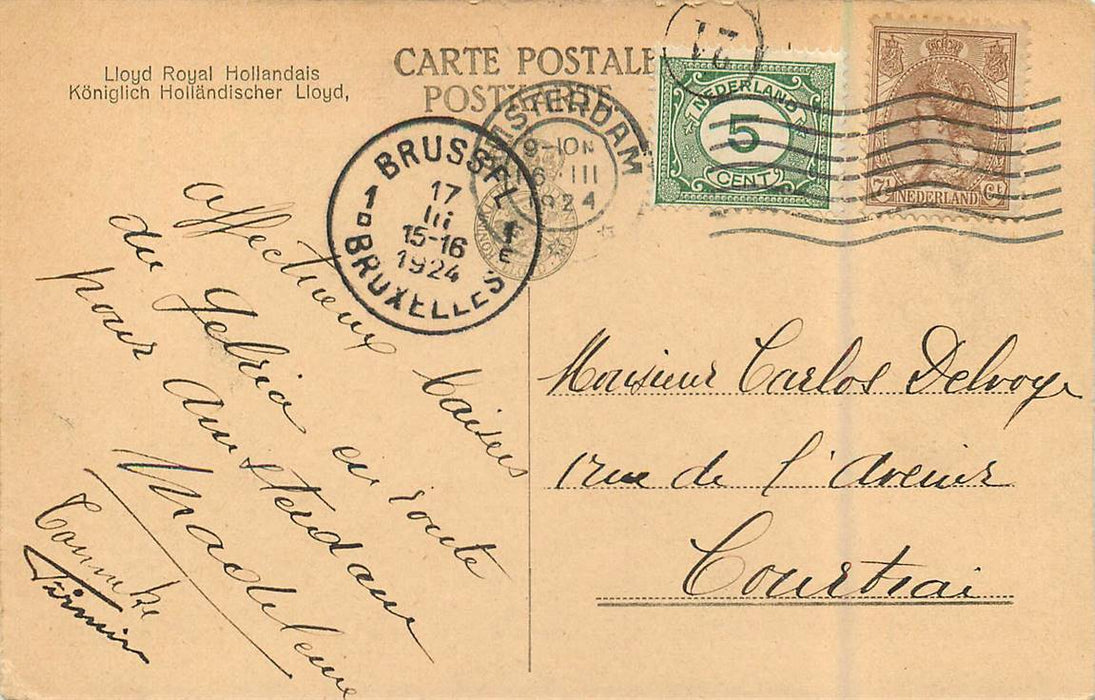 Lloyd Royal Hollandais
Königlich Holländischer Lloyd,
CARTE POSTALE
POSTKARTE
21
AMSTERDAM
9-10 N
16 III
1924
BRUSSEL
1D 1E
17
III
15-16
1924
BRUXELLES
NEDERLAND
5
CENT
7½ Ct
NEDERLAND
affectueux baisers
du Gelria en route
pour Amsterdam
Madeleine
Firmin
Monsieur Carlos Delvoye
rue de l'Avenir
Courtrai